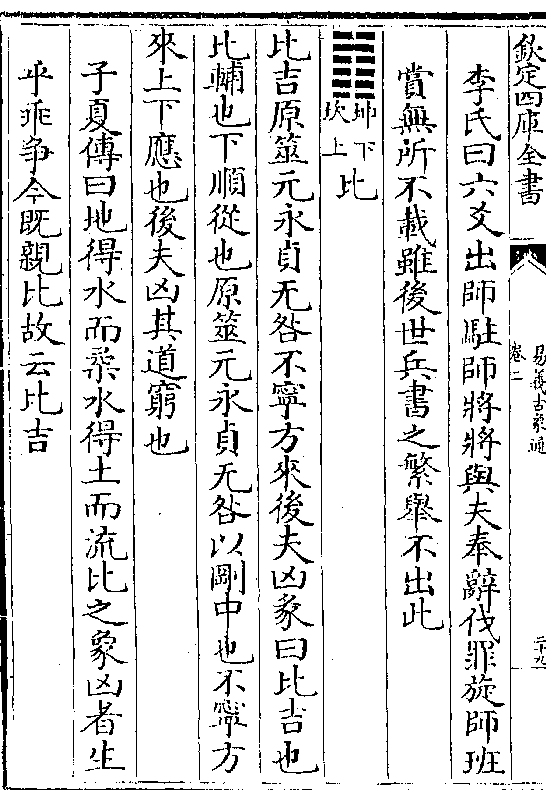 欽定四庫全書
易義古象通
卷二
二十九
李氏曰六爻出師駐師將將與夫奉辭伐罪旋師班
賞無所不載雖後世兵書之繁舉不出此
坤下
坎上
比
比吉原筮元永貞无咎不寧方來後夫凶彖曰比吉也
比輔也下順從也原筮元永貞无咎以剛中也不寧方
來上下應也後夫凶其道窮也
子夏傳曰地得水而柔水得土而流比之象凶者生
乎乖爭今既親比故云比吉